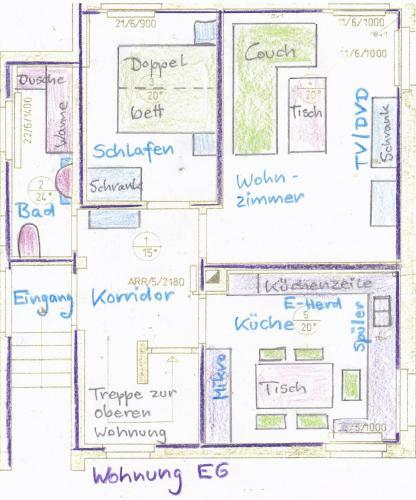 21/6/900
11/6/1000
11/6/1000
Dusche
Wanne
22/6/1400
Doppel
20°
bett
Couch
4
20°
Tisch
TV/DVD
Schrank
Schlafen
Schrank
Wohn-
zimmer
2
24°
Bad
1
15°
ARR/5/2180
Eingang
Korridor
Küchenzeile
E-Herd
Küche
5
20°
Spüler
Mikro
Tisch
Treppe zur
oberen
Wohnung
5/1000
Wohnung EG